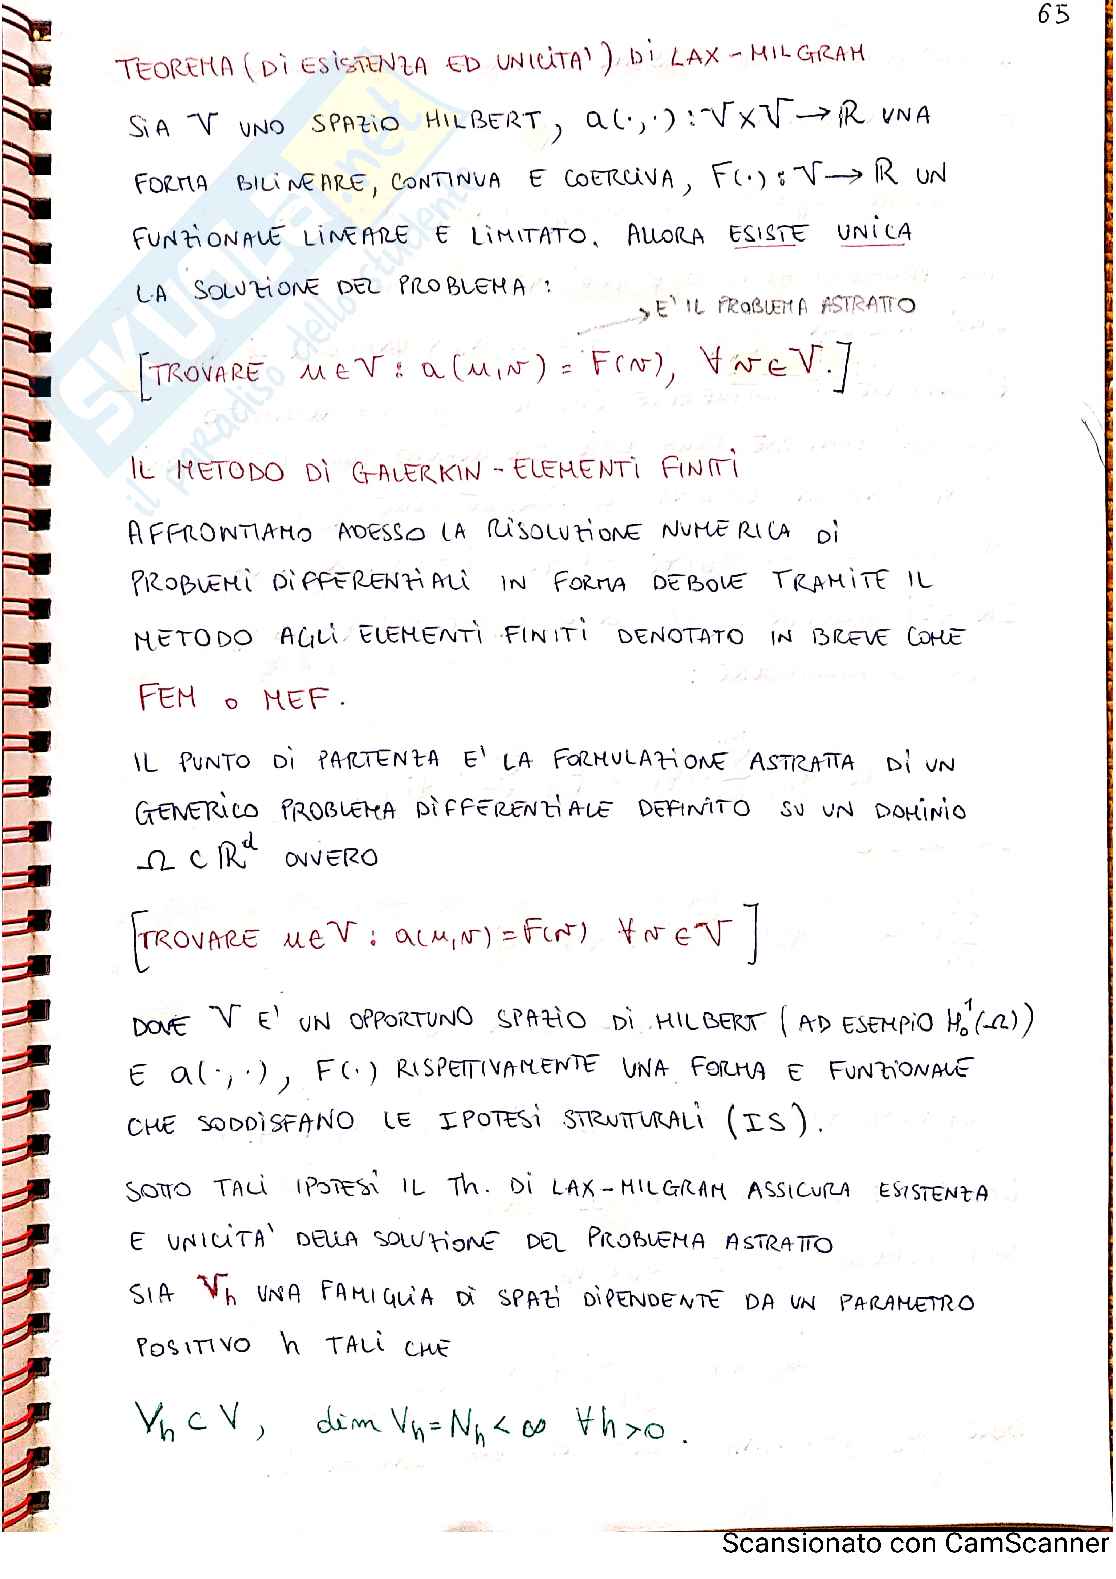 65
TEOREMA (DI ESISTENZA ED UNICITA') DI LAX-MILGRAM
SIA V UNO SPAZIO HILBERT, a(·,·): V×V → ℝ UNA
FORMA BILINEARE, CONTINUA E COERCIVA, F(·): V → ℝ UN
FUNZIONALE LINEARE E LIMITATO. ALLORA ESISTE UNICA
LA SOLUZIONE DEL PROBLEMA:
→ E' IL PROBLEMA ASTRATTO
[TROVARE u∈V: a(u,v) = F(v), ∀v∈V.]
IL METODO DI GALERKIN-ELEMENTI FINITI
AFFRONTIAMO ADESSO LA RISOLUZIONE NUMERICA DI
PROBLEMI DIFFERENZIALI IN FORMA DEBOLE TRAMITE IL
METODO AGLI ELEMENTI FINITI DENOTATO IN BREVE COME
FEM o MEF.
IL PUNTO DI PARTENZA E' LA FORMULAZIONE ASTRATTA DI UN
GENERICO PROBLEMA DIFFERENZIALE DEFINITO SU UN DOMINIO
Ω ⊂ ℝᵈ OVVERO
[TROVARE u∈V: a(u,v) = F(v) ∀v∈V]
DOVE V E' UN OPPORTUNO SPAZIO DI HILBERT (AD ESEMPIO H₀¹(Ω))
E a(·,·), F(·) RISPETTIVAMENTE UNA FORMA E FUNZIONALE
CHE SODDISFANO LE IPOTESI STRUTTURALI (IS).
SOTTO TALI IPOTESI IL Th. DI LAX-MILGRAM ASSICURA ESISTENZA
E UNICITA' DELLA SOLUZIONE DEL PROBLEMA ASTRATTO
SIA Vₕ UNA FAMIGLIA DI SPAZI DIPENDENTE DA UN PARAMETRO
POSITIVO h TALI CHE
Vₕ ⊂ V, dim Vₕ = Nₕ < ∞ ∀h>0.
SKUOLA.net
il paradiso dello studente
Scansionato con CamScanner